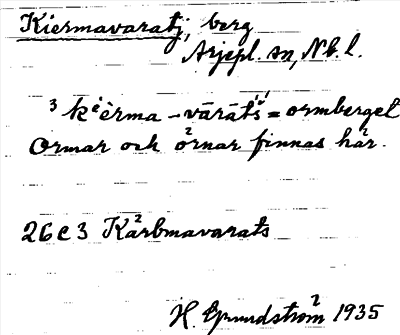 Kiermavaratj, berg
Arjepl. sn, Nb. l.
³ kᵉèrma - vārātś = ormberget
Ormar och örnar finnas här.
26 e 3 Kärbmavarats
H. Grundström 1935